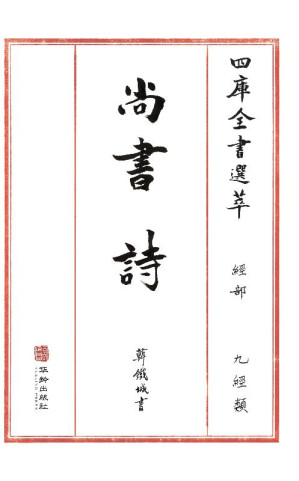 四庫全書選萃
經部
九經類
尚書 詩
韓鐵城書
华龄出版社